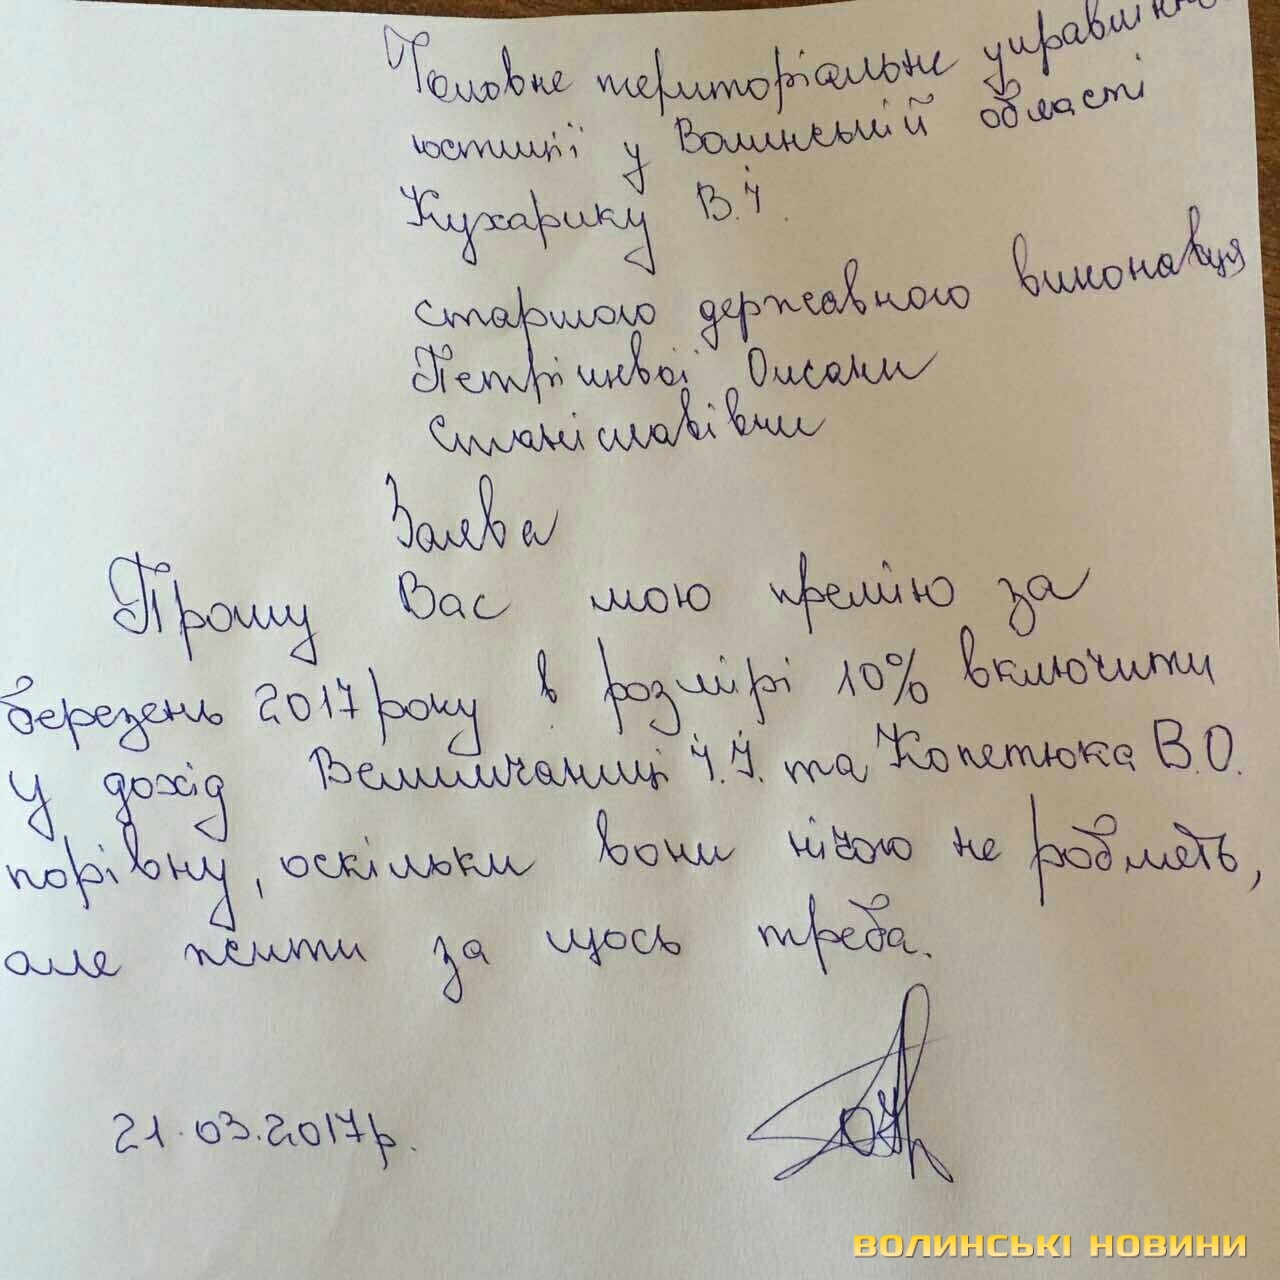 Головне територіальне управління
юстиції у Волинській області
Кухарику В.Й.
старшого державного виконавця
Петрішевої Оксани
Станіславівни
Заява
Прошу Вас мою премію за
березень 2017 року в розмірі 10% включити
у дохід Велимчаниці Й.Й. та Копетюка В.О.
порівну, оскільки вони нічого не роблять,
але жити за щось треба.
21.03.2017р.
ВОЛИНСЬКІ НОВИНИ